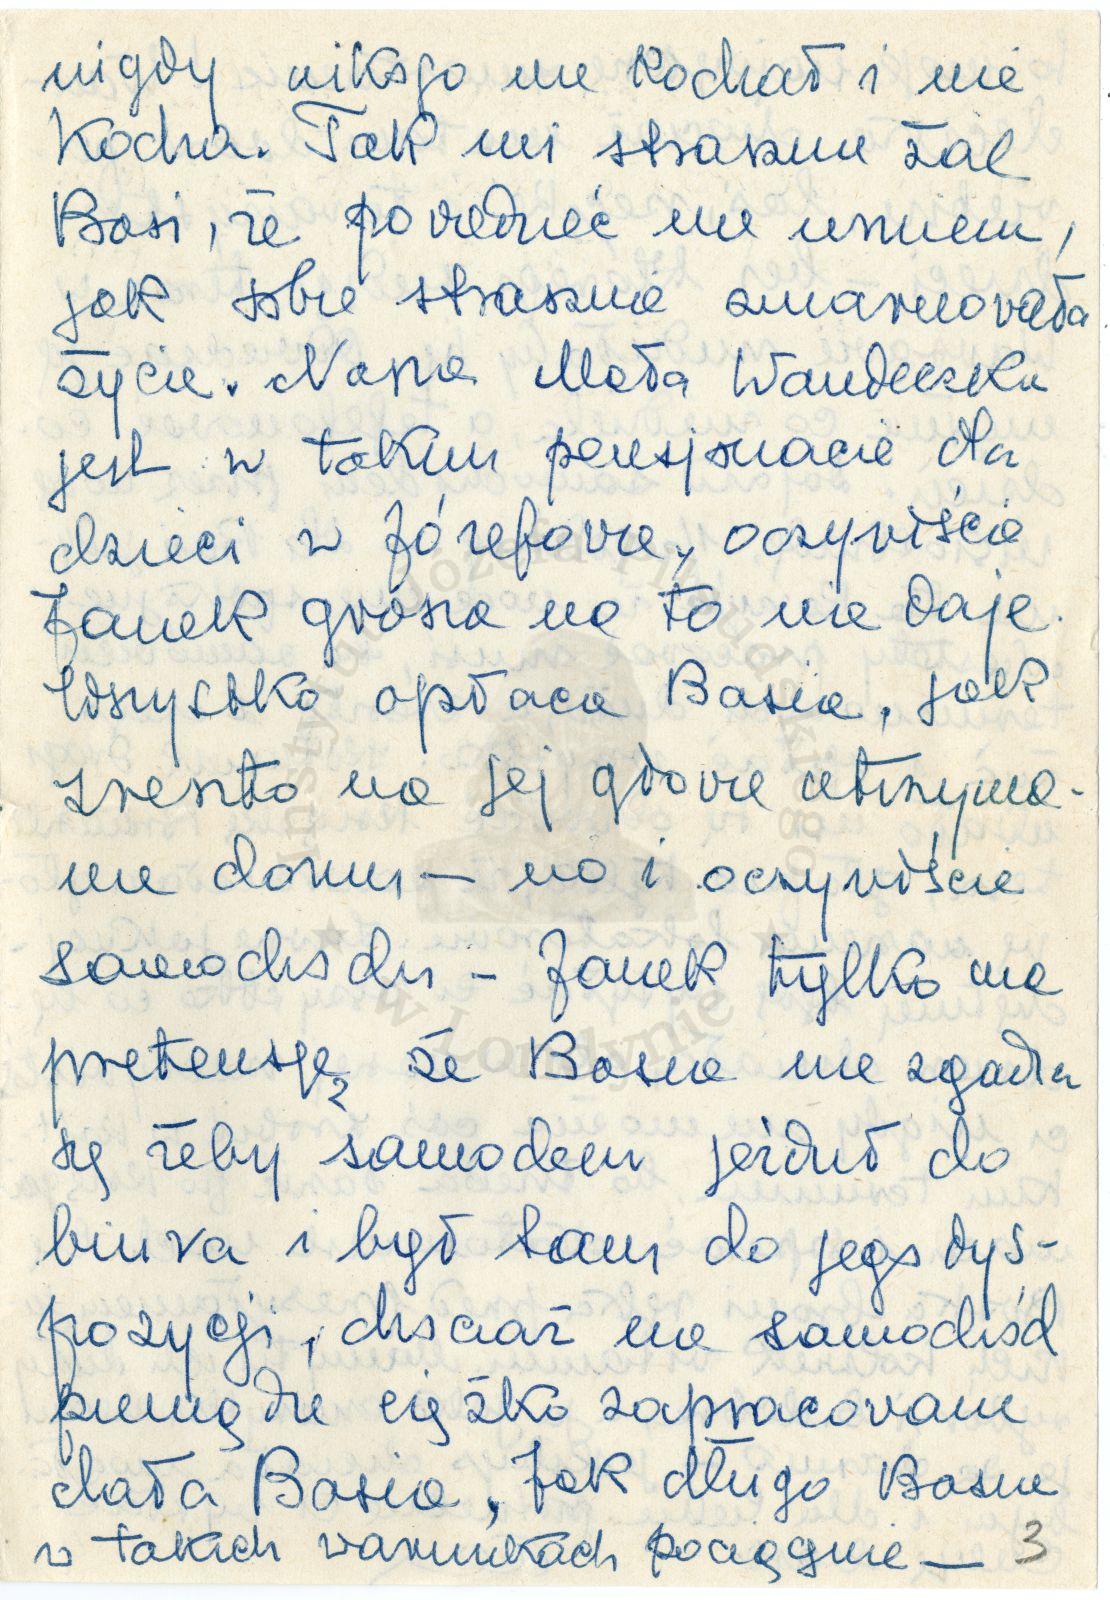 nigdy nikogo nie kochał i nie
kocha. Tak mi strasznie żal
Basi, że powiedzieć nie umiem,
jak sobie strasznie zmarnowała
życie. Nasza Mała Wandeczka
jest w takim pensjonacie dla
dzieci w Józefowie, oczywiście
Janek grosza na to nie daje.
Wszystko opłaca Basia, jak
zresztą na jej głowie utrzyma-
nie domu — no i oczywiście
samochodu – Janek tylko ma
pretensję, że Basia nie zgadza
się żeby samochodem jeździł do
biura i był tam do jego dys-
pozycji, chociaż na samochód
pieniądze ciężko zapracowane
dała Basia, Jak długo Basia
w takich warunkach pociągnie — 3
Instytut Józefa Piłsudskiego
w Londynie